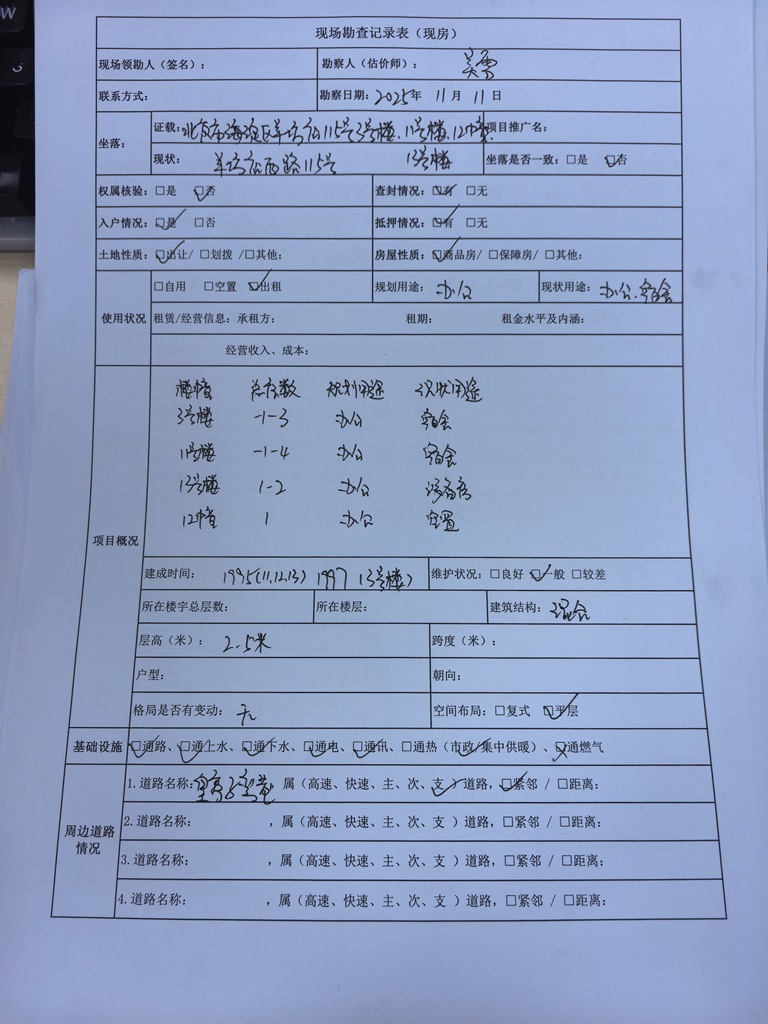 现场勘查记录表（现房）
现场领勘人（签名）： 勘察人（估价师）：
联系方式： 勘察日期：2025年 11月 11日
坐落： 证载：北京市海淀区羊坊店115号3号楼、11号楼、12幢 项目推广名：
现状： 羊坊店西路115号 13号楼 坐落是否一致：□是 ☑否
权属核验：□是 ☑否 查封情况：☑有 □无
入户情况：☑是 □否 抵押情况：☑有 □无
土地性质：☑出让/ □划拨 /□其他： 房屋性质：☑商品房/ □保障房/ □其他：
使用状况 □自用 □空置 ☑出租 规划用途：办公 现状用途：办公、宿舍
租赁/经营信息：承租方： 租期： 租金水平及内涵：
经营收入、成本：
项目概况
楼幢 总层数 规划用途 现状用途
3号楼 -1-3 办公 宿舍
11号楼 -1-4 办公 宿舍
13号楼 1-2 办公 设备房
12幢 1 办公 空置
建成时间： 1995(11.12.13) 1997（3号楼） 维护状况：□良好 ☑一般 □较差
所在楼宇总层数： 所在楼层： 建筑结构：混合
层高（米）： 2.5米 跨度（米）：
户型： 朝向：
格局是否有变动： 无 空间布局：□复式 ☑平层
基础设施 ☑通路、☑通上水、☑通下水、☑通电、☑通讯、□通热（市政/集中供暖）、☒通燃气
周边道路情况
1.道路名称： ，属（高速、快速、主、次、支 ✓）道路，☑紧邻 / □距离：
2.道路名称： ，属（高速、快速、主、次、支 ）道路，□紧邻 / □距离：
3.道路名称： ，属（高速、快速、主、次、支 ）道路，□紧邻 / □距离：
4.道路名称： ，属（高速、快速、主、次、支 ）道路，□紧邻 / □距离：